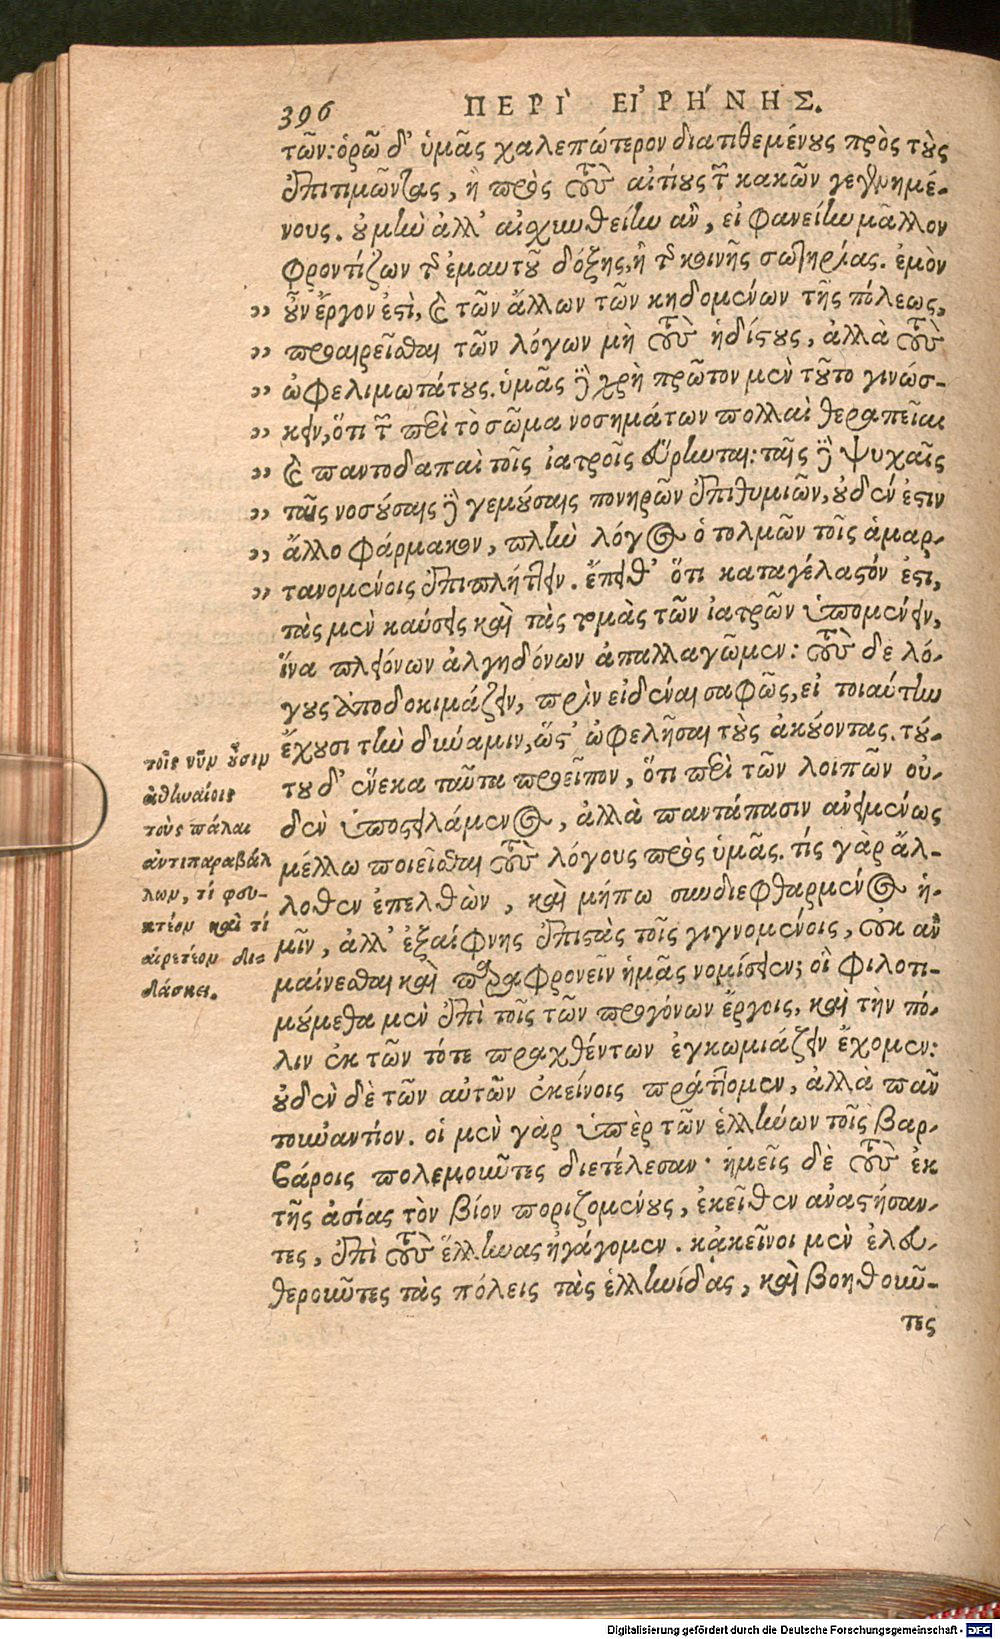 396 ΠΕΡῚ ΕἸΡΉΝΗΣ.
τῶν: ὁρῶ δ' ὑμᾶς χαλεπώτερον διατιθεμένους πρὸς τοὺς
ἐπιτιμῶντας, ἢ πρὸς τοὺς αἰτίους τῶν κακῶν γεγενημέ-
νους. οὐ μὴν ἀλλ' αἰσχυνθείην ἂν, εἰ φανείην μᾶλλον
φροντίζων τῆς ἐμαυτοῦ δόξης, ἢ τῆς κοινῆς σωτηρίας. ἐμὸν
„ οὖν ἔργον ἐστὶ, καὶ τῶν ἄλλων τῶν κηδομένων τῆς πόλεως,
„ προαιρεῖσθαι τῶν λόγων μὴ τοὺς ἡδίστους, ἀλλὰ τοὺς
„ ὠφελιμωτάτους. ὑμᾶς δὲ χρὴ πρῶτον μὲν τοῦτο γινώσ-
„ κειν, ὅτι τῶν περὶ τὸ σῶμα νοσημάτων πολλαὶ θεραπεῖαι
„ καὶ παντοδαπαὶ τοῖς ἰατροῖς εὕρηνται: ταῖς δὲ ψυχαῖς
„ ταῖς νοσούσαις καὶ γεμούσαις πονηρῶν ἐπιθυμιῶν, οὐδέν ἐστιν
„ ἄλλο φάρμακον, πλὴν λόγος ὁ τολμῶν τοῖς ἁμαρ-
„ τανομένοις ἐπιπλήττειν. ἔπειθ' ὅτι καταγέλαστόν ἐστι,
τὰς μὲν καύσεις καὶ τὰς τομὰς τῶν ἰατρῶν ὑπομένειν,
ἵνα πλειόνων ἀλγηδόνων ἀπαλλαγῶμεν: τοὺς δε λό-
γους ἀποδοκιμάζειν, πρὶν εἰδέναι σαφῶς, εἰ τοιαύτην
ἔχουσι τὴν δύναμιν, ὥστ' ὠφελῆσαι τοὺς ἀκούοντας. τού-
του δ' ἕνεκα ταῦτα προεῖπον, ὅτι περὶ τῶν λοιπῶν οὐ-
δὲν ὑποστειλάμενος, ἀλλὰ παντάπασιν ἀνειμένως
μέλλω ποιεῖσθαι τοὺς λόγους πρὸς ὑμᾶς. τίς γὰρ ἄλ-
λοθεν ἐπελθὼν, καὶ μήπω συνδιεφθαρμένος ἡ-
μῖν, ἀλλ' ἐξαίφνης ἐπιστὰς τοῖς γιγνομένοις, οὐκ ἂν
μαίνεσθαι καὶ παραφρονεῖν ἡμᾶς νομίσειεν; οἳ φιλοτι-
μούμεθα μὲν ἐπὶ τοῖς τῶν προγόνων ἔργοις, καὶ τὴν πό-
λιν ἐκ τῶν τότε πραχθέντων ἐγκωμιάζειν ἔχομεν:
οὐδὲν δὲ τῶν αὐτῶν ἐκείνοις πράττομεν, ἀλλὰ πᾶν
τοὐναντίον. οἱ μὲν γὰρ ὑπὲρ τῶν ἑλλήνων τοῖς βαρ-
βάροις πολεμοῦντες διετέλεσαν· ἡμεῖς δὲ τοὺς ἐκ
τῆς ἀσίας τὸν βίον ποριζομένους, ἐκεῖθεν ἀναστήσαν-
τες, ἐπὶ τοὺς ἕλληνας ἠγάγομεν. κἀκεῖνοι μὲν ἐλευ-
θεροῦντες τὰς πόλεις τὰς ἑλληνίδας, καὶ βοηθοῦν-
τες
τοῖς νῦν οὖσιν
ἀθηναίοις
τοὺς πάλαι
ἀντιπαραβάλ
λων, τί φευ-
κτέον καὶ τί
αἱρετέον δι-
δάσκει.
Digitalisierung gefördert durch die Deutsche Forschungsgemeinschaft - DFG